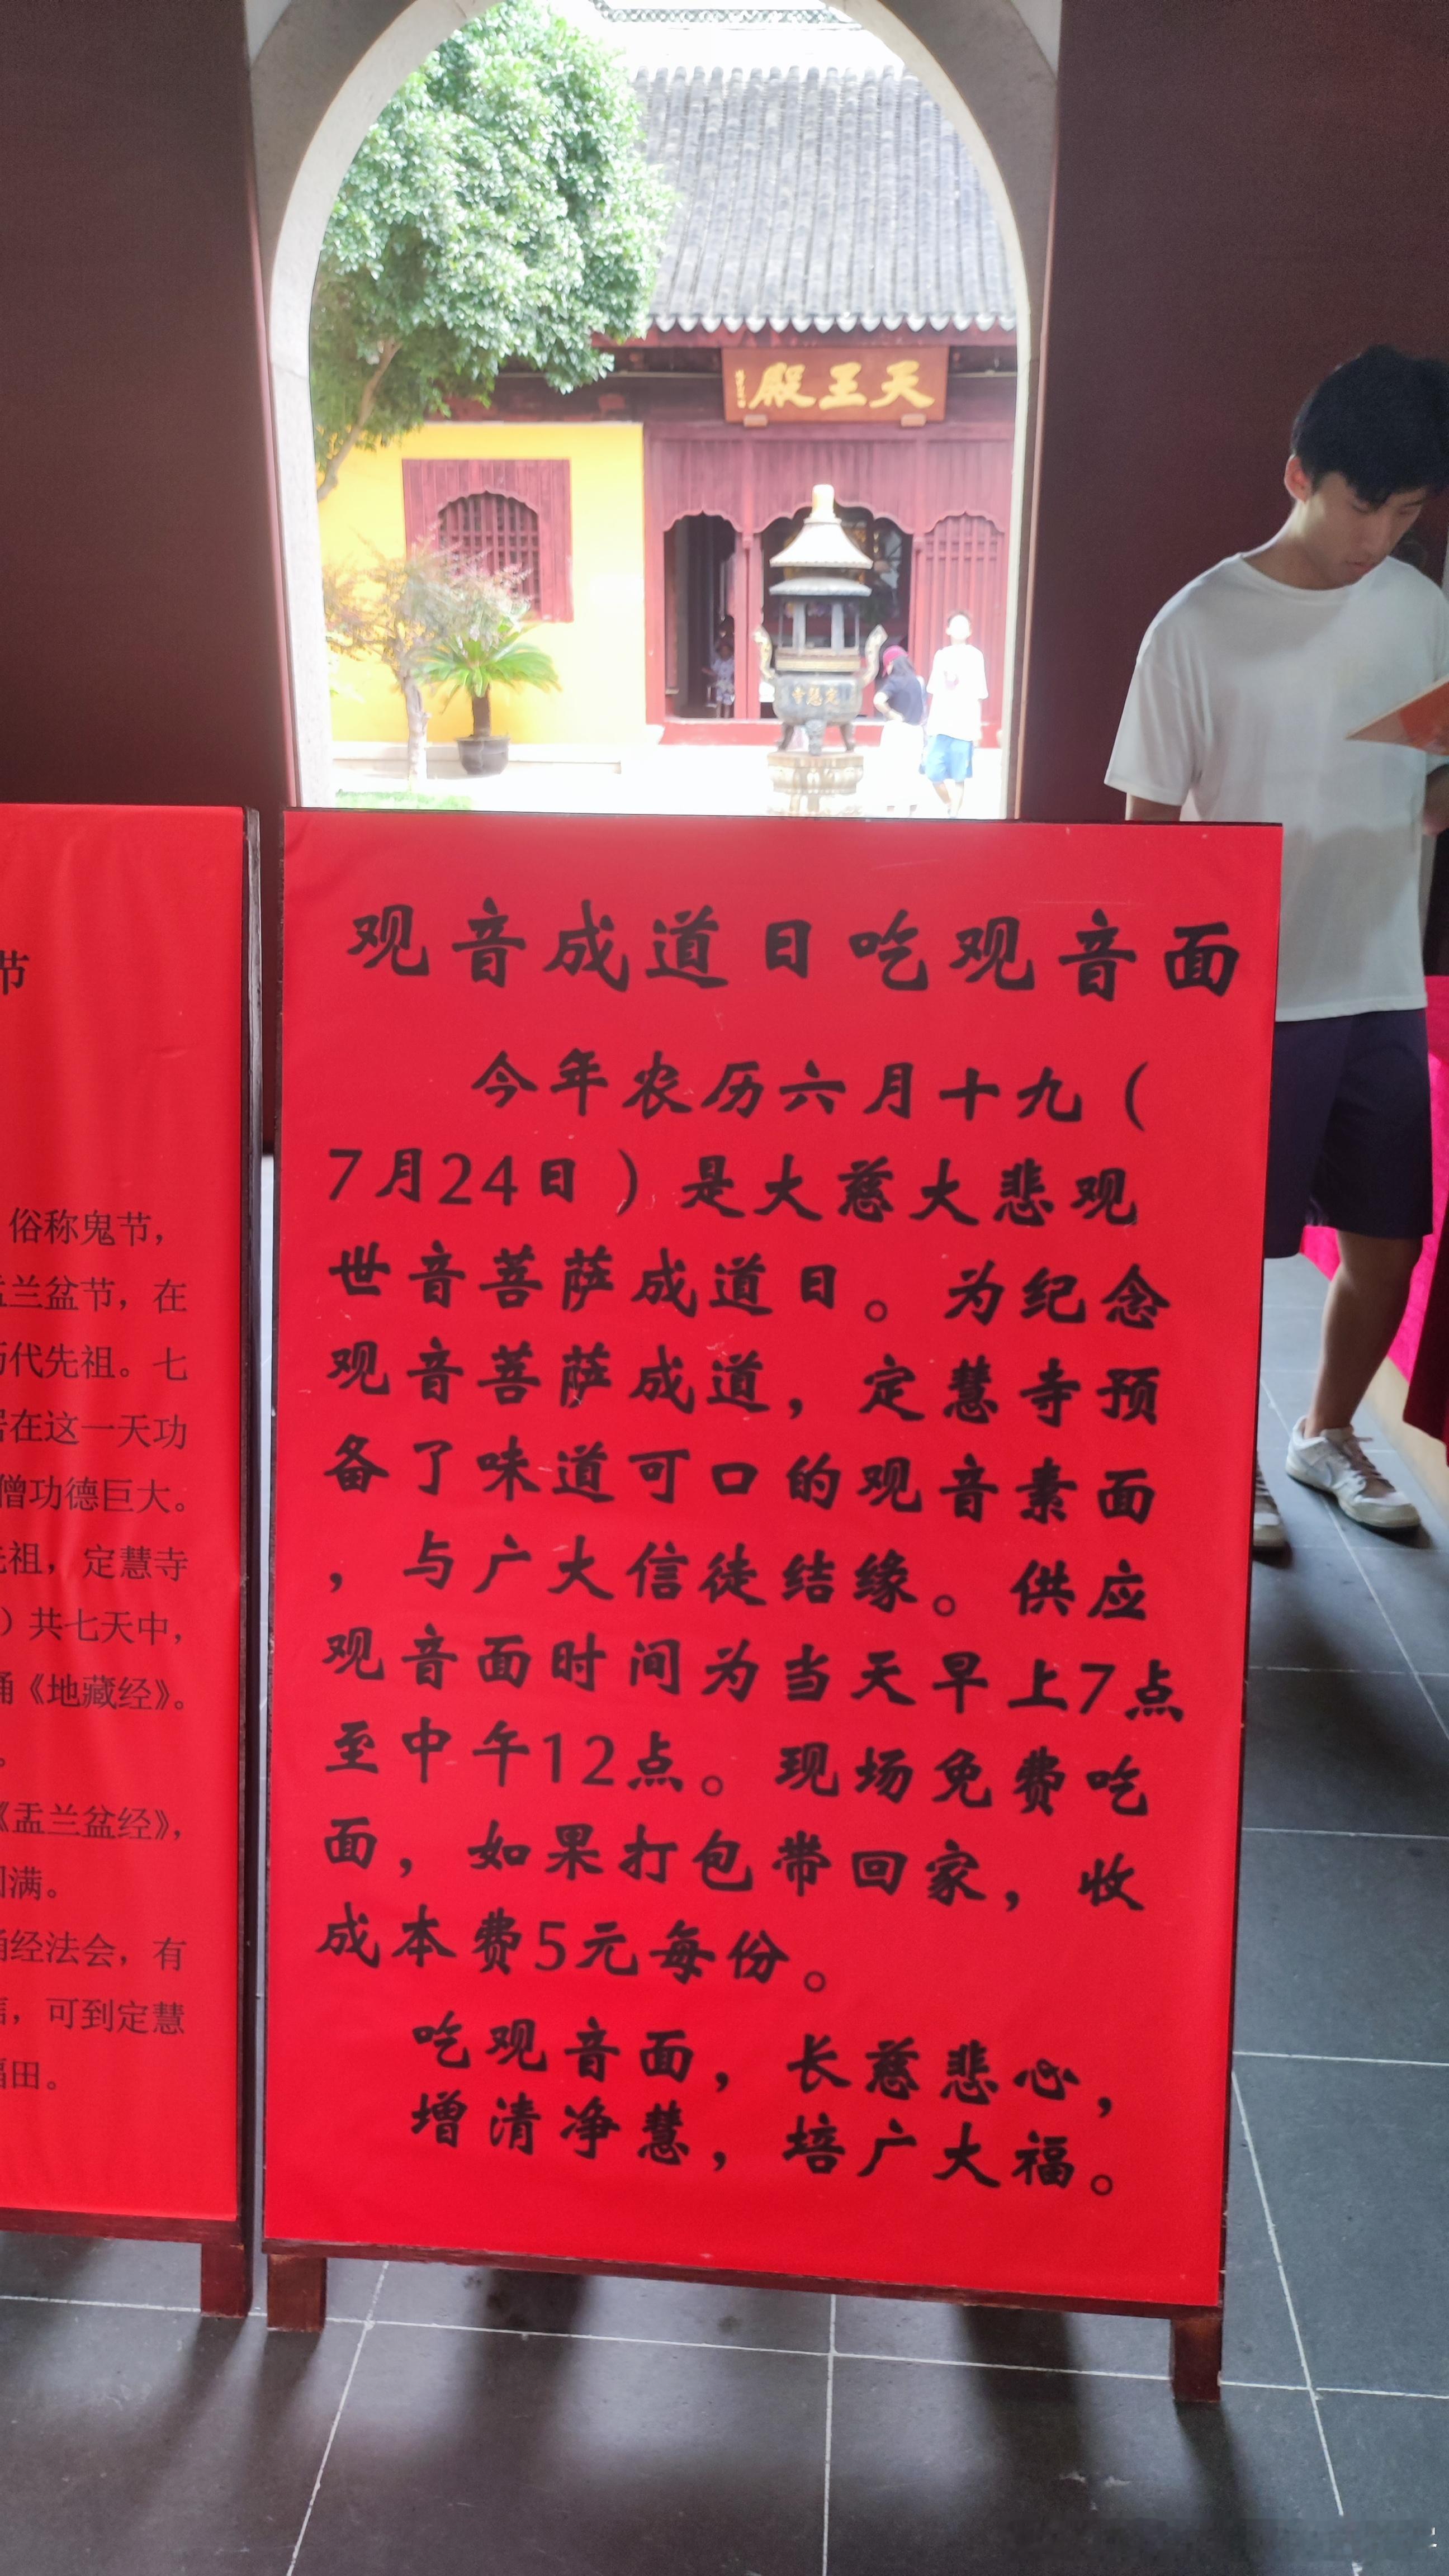 天王殿
定慧寺
节
俗称鬼节，
盂兰盆节，在
历代先祖。七
在这一天功
僧功德巨大。
先祖，定慧寺
）共七天中，
诵《地藏经》。
。
《盂兰盆经》，
圆满。
诵经法会，有
，可到定慧
福田。
观音成道日吃观音面
今年农历六月十九（
7月24日）是大慈大悲观
世音菩萨成道日。为纪念
观音菩萨成道，定慧寺预
备了味道可口的观音素面
，与广大信徒结缘。供应
观音面时间为当天早上7点
至中午12点。现场免费吃
面，如果打包带回家，收
成本费5元每份。
吃观音面，长慈悲心，
增清净慧，培广大福。